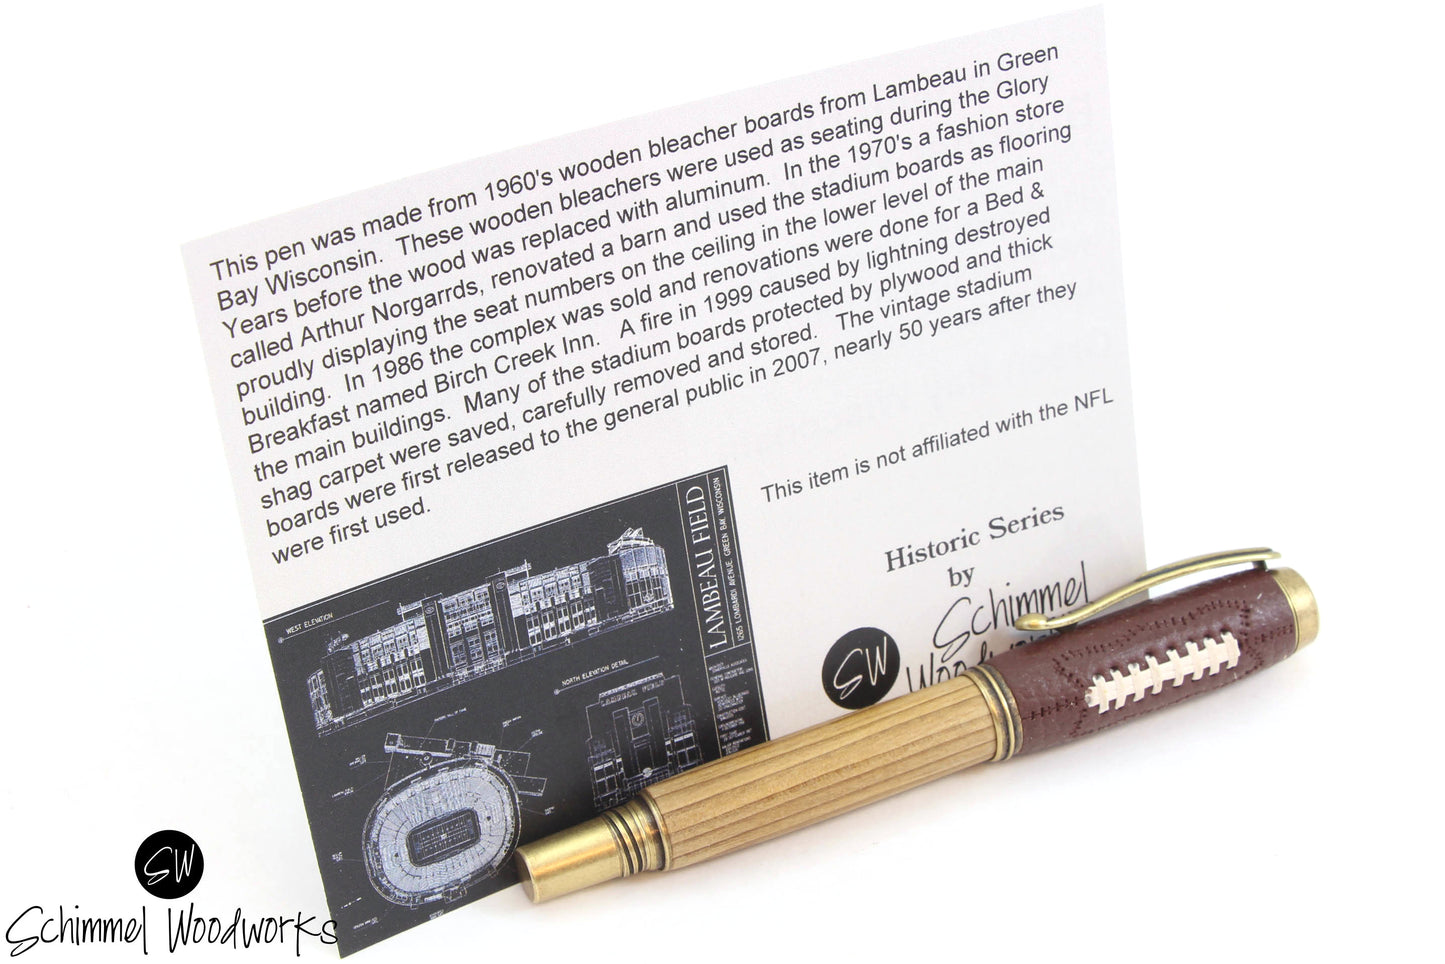 This pen was made from 1960's wooden bleacher boards from Lambeau in Green
Bay Wisconsin. These wooden bleachers were used as seating during the Glory
Years before the wood was replaced with aluminum. In the 1970's a fashion store
called Arthur Norgarrds, renovated a barn and used the stadium boards as flooring
proudly displaying the seat numbers on the ceiling in the lower level of the main
building. In 1986 the complex was sold and renovations were done for a Bed &
Breakfast named Birch Creek Inn. A fire in 1999 caused by lightning destroyed
the main buildings. Many of the stadium boards protected by plywood and thick
shag carpet were saved, carefully removed and stored. The vintage stadium
boards were first released to the general public in 2007, nearly 50 years after they
were first used.
This item is not affiliated with the NFL
Historic Series
by
Schimmel
SW
LAMBEAU FIELD
1265 LOMBARDI AVENUE, GREEN BAY, WISCONSIN
WEST ELEVATION
NORTH ELEVATION DETAIL
LAMBEAU FIELD
SW
Schimmel Woodworks